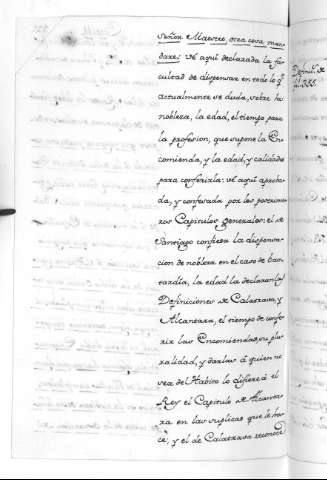 señor Maestre, otra cosa man-
dare: vé aqui declarada la fa-
cultad de dispensar en todo lo q.
actualmente se duda, sobre la
nobleza, la edad, el tiempo para
la profesion, que supone la En-
comienda, y la edad, y calidades
para conferirla: vé aqui aproba-
da, y confesada por los
Capitulos generales: el de
Santiago confiesa la dispensa-
cion de nobleza en el caso de bas-
tardía, la edad la declaran las
Definiciones de Calatrava, y
Alcantara, el tiempo de confe-
rir las Encomiendas, su plu-
ralidad, y darlas á quien no
sea de Habito lo difiere á el
Rey el Capitulo de Alcanta-
ra en las suplicas que le ha-
ce; y el de Calatrava reconoce
Definit.s de